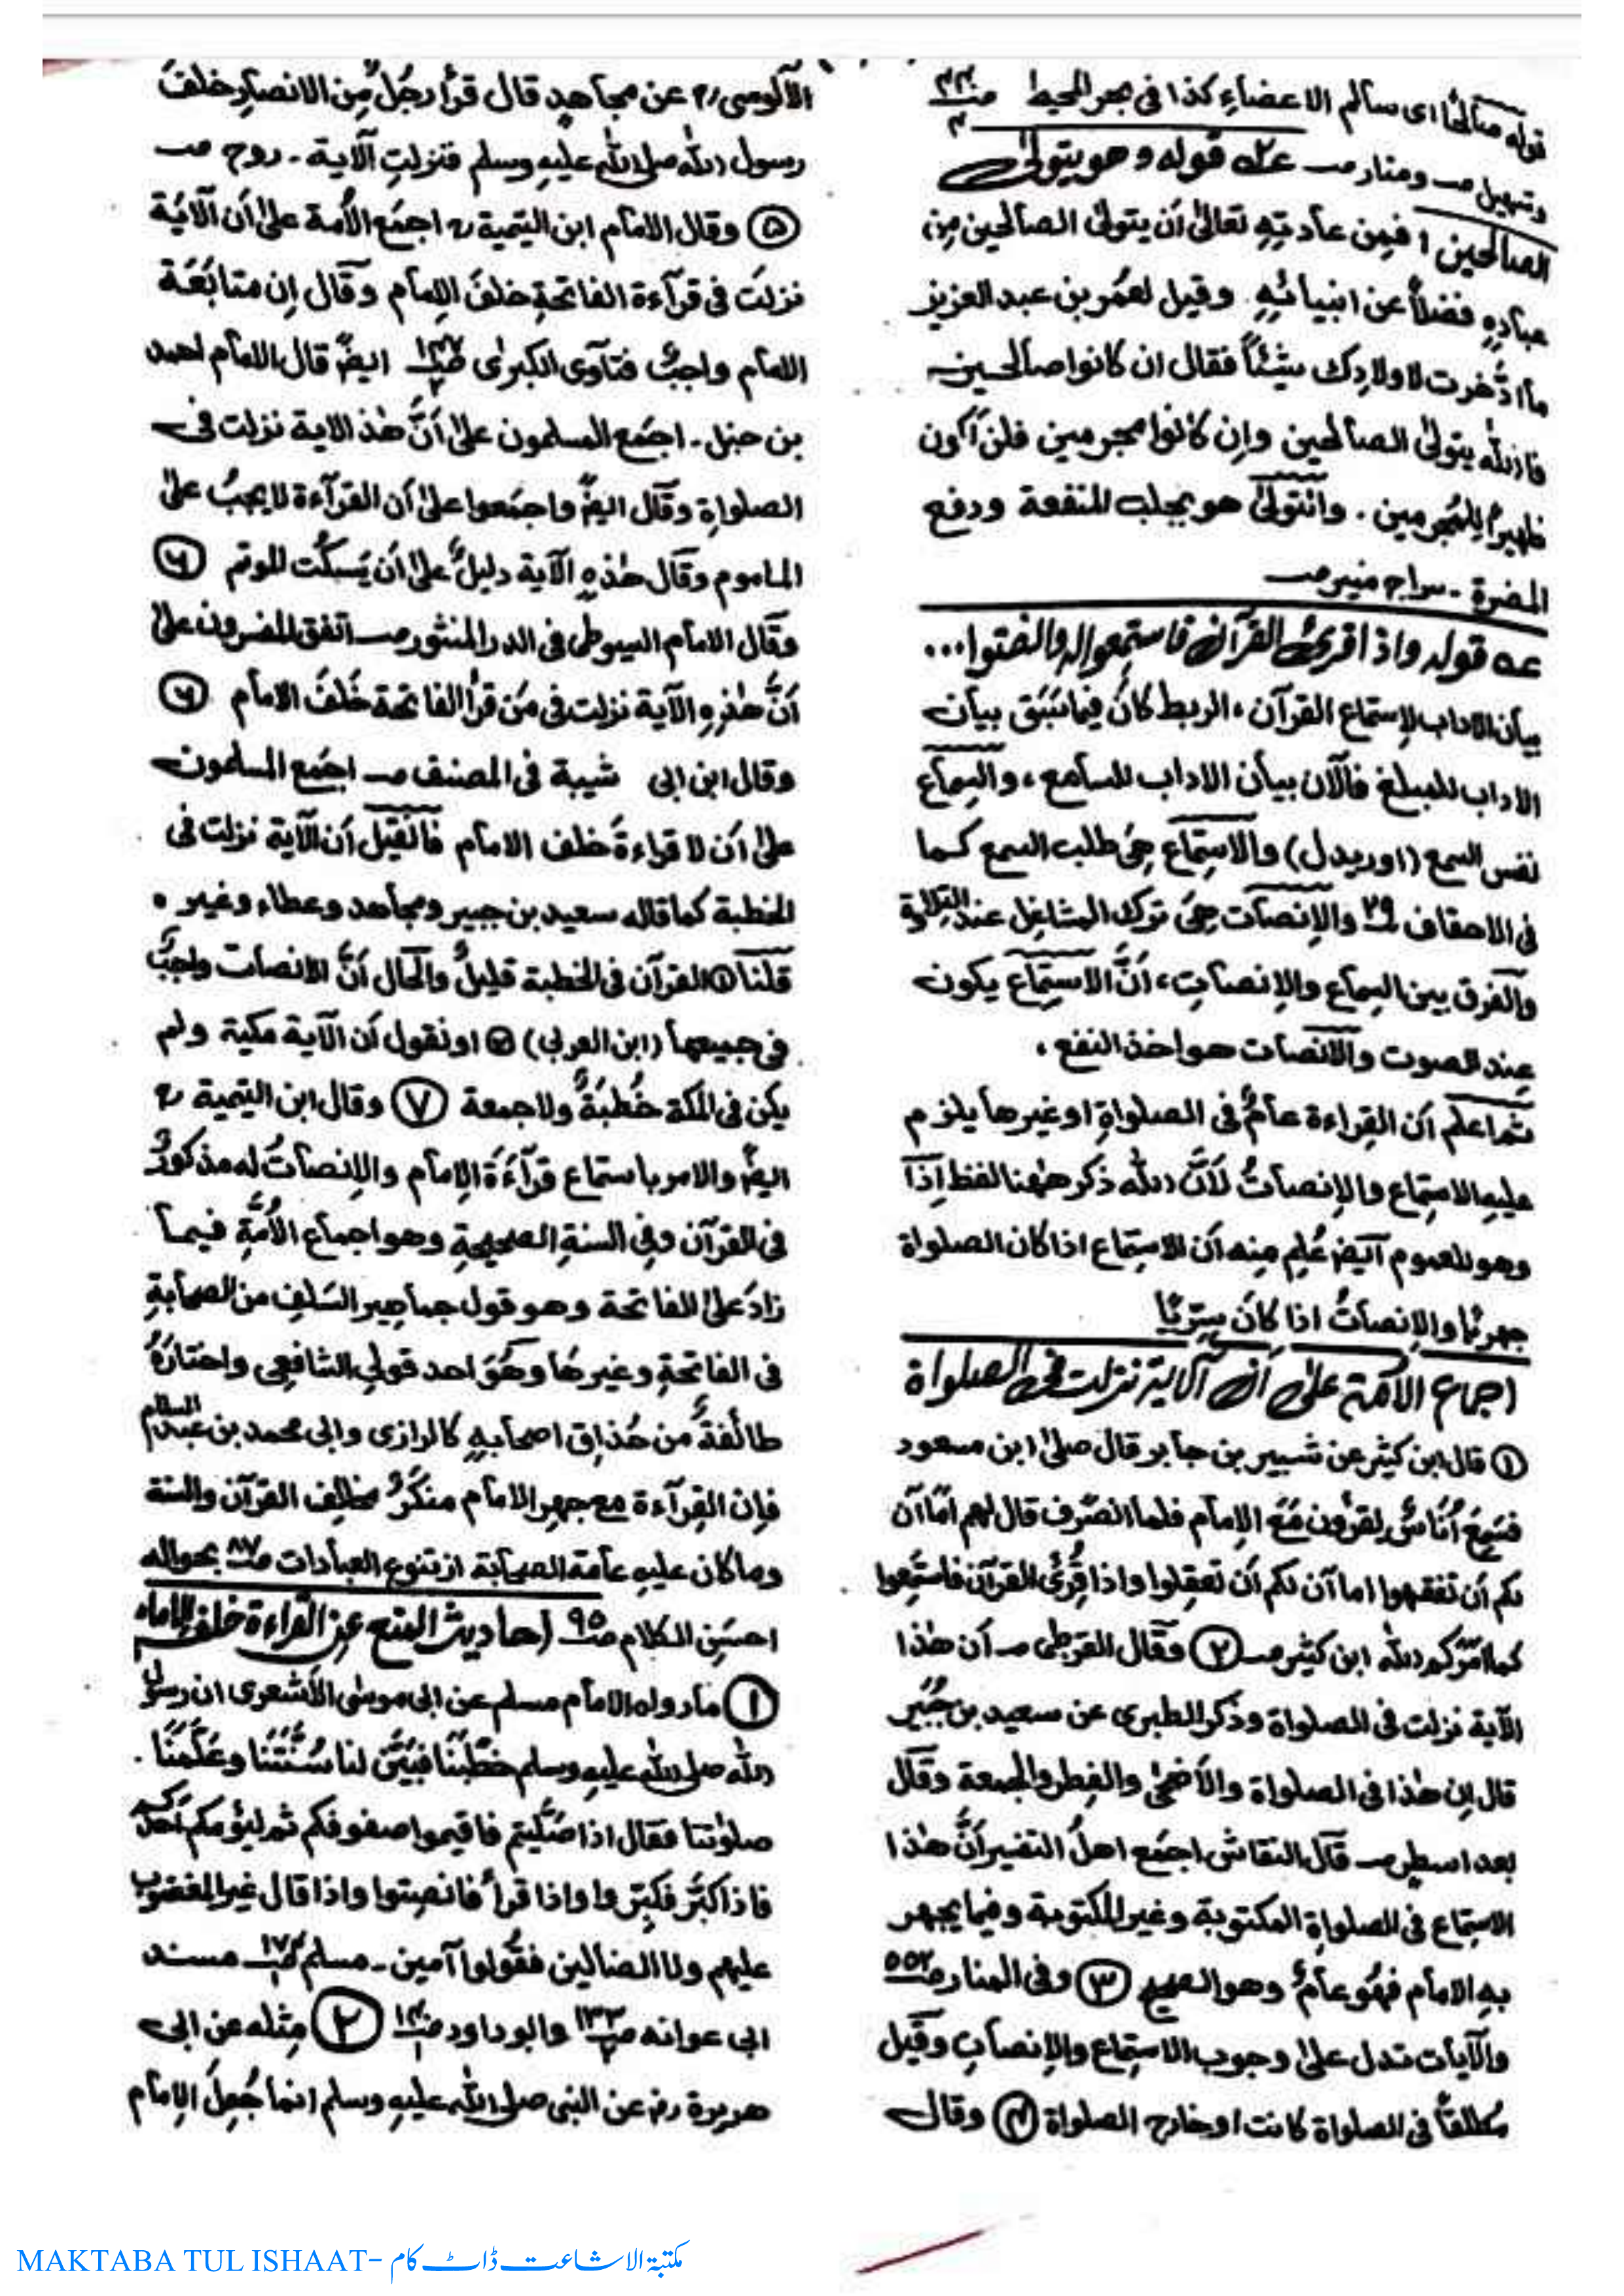 قوله صالحًا اى سالم الاعضاءِ كذا فى بحر المحيط
وتسهيل صـ ومنار صـ قوله وهو يتولى
الصالحين، فمِن عادتِهِ تعالىٰ أن يتولىٰ الصالحين مِن
عبادِهِ فضلاً عن انبيائِهِ. وقيل لعمُر بن عبد العزيز
ما ادّخرت لاولادِك شيئًا فقال ان كانوا صالحين
فالله يتولىٰ الصالحين وإن كانوا مجرمين فلن أكون
ظهيرًا للمجرمين. والتولىٰ هو يجلب المنفعة ودفع
المضرة - سراج منير صـ
عـ٥ قوله واذا قرئ القرآن فاستمعوا له وانصتوا...
بيان الاداب لاستماع القرآن، الربط كانَ فيما سَبَق بيان
الاداب للمبلغ فالآن بيان الاداب للسامع، والسِماع
نفس السمع (اوريدل) والاستِماع هِىَ طلب السمع كما
فى الاحقاف ٢٩ والإنصات هِىَ ترك المشاغِل عند التلاوة
والفرق بين السِماع والإنصاتِ، أنَّ الاستِماع يكون
عِند الصوت والانصات هو اخذ النفع،
ثم اعلم أن القِراءة عامٌ فى الصلواةِ او غيرها يلزم
عليهِ الاستِماع والإنصاتُ لأنَّ الله ذكر هٰهنا لفظ إذا
وهو للعموم ايضًا عُلِم مِنه أن الاستِماع اذا كان الصلواة
جهريًا والإنصاتُ اذا كانَ سِرّيًا
اجماع الامة علىٰ أن الآية نزلت فى الصلواة
① قال ابن كثير عن شبير بن جابر قال صلىٰ ابن مسعود
فسَمِعَ أُنَاسًا يقرؤن مَعَ الإمام فلما انصَرف قال لهم أمَا آن
لكم أن تفقهوا اما آن لكم أن تعقِلوا واذا قُرِئَ القرآن فاستمعوا
كما امَرَكم الله ابن كثير صـ ② وقال القرطبى صـ أن هٰذا
الآية نزلت فى الصلواة وذكر الطبرى عن سعيد بن جُبَير
قال إن هٰذا فى الصلواة والأضحىٰ والفِطر والجمعة وقال
بعد اسطر صـ قال النقاش اجمَع اهلُ التفسير أنَّ هٰذا
الاستِماع فى الصلواةِ المكتوبة وغير المكتوبة وفيما يجهر
بهِ الامام فهُو عامٌ وهو الصحيح ③ وفى المنار صـ ٥٥٢
والآيات تدل علىٰ وجوب الاستِماع والإنصاتِ وقيل
مُطلقًا فى الصلواة كانت او خارج الصلواة ④ وقال
الآلوسى رح عن مجاهدٍ قال قرأ رجُلٌ مِن الانصارِ خلفَ
رسول الله صلى الله عليهِ وسلم فنزلتِ الآية - روح صـ
⑤ وقال الامام ابن التيمية رح اجمَع الأمة علىٰ أن الآيَة
نزلَت فى قرآءة الفاتحةِ خلفَ الإمام وقال إن متابَعَة
الامام واجبٌ فتاوى الكبرىٰ ايضً قال الامام احمد
بن حنبل - اجمَع المسلمون علىٰ أنَّ هٰذ الاية نزلت فى
الصلواةِ وقال ايضً واجمَعوا علىٰ أن القرآءة لا يجبُ علىٰ
الماموم وقال هٰذهِ الآية دليلٌ علىٰ أن يَسكُت الموتم ⑥
وقال الامام السيوطى فى الدر المنثور صـ اتفق المفسرون علىٰ
أنَّ هٰذهِ الآية نزلت فى مَن قرأ الفاتحة خَلفَ الامام ⑥
وقال ابن ابى شيبة فى المصنف صـ اجمَع المسلمون
علىٰ أن لا قراءةَ خلف الامام فان قيل أن الآية نزلت فى
الخطبة كما قاله سعيد بن جبير ومجاهد وعطاء وغيره
قلنا ① القرآن فى الخطبة قليلٌ والحال أنَّ الانصات واجبٌ
فى جميعها (ابن العربى) ② او نقول أن الآية مكية ولم
يكن فى المكة خُطبَةً ولا جمعة ⑦ وقال ابن التيمية رح
ايضً والامر باستماع قرآءَةَ الإمام والإنصاتُ له مذكورٌ
فى القرآن وفى السنةِ الصحيحةِ وهو اجماع الأُمَّةِ فيما
زادَ علىٰ الفاتحة وهو قول جماهير السَلفِ من الصحابةِ
فى الفاتحةِ وغيرها وهُوَ احد قولى الشافعى واختارَهُ
طائفةٌ من حُذاق اصحابهِ كالرازى وابى محمد بن عبد السلام
فإن القِرآءة مع جهرِ الامام منكَرٌ مخالِف القرآن والسنة
وما كان عليهِ عامة الصحابة از تنوع العبادات صـ ٨٧ بحواله
احسَنِ الكلام صـ ٩٥ احاديث المنع عنِ القراءة خلف الامام
① ما رواه الامام مسلم عن ابى موسىٰ الأشعرى ان رسول
الله صلى الله عليهِ وسلم خطَبَنَا فبَيَّنَ لنا سُنَّتَنَا وعَلَّمَنَا
صلوٰتنا فقال اذا صَلّيتم فاقيموا صفوفكم ثم ليؤمكم أحدكم
فاذا كبّر فكبِّروا واذا قرأ فانصِتوا واذا قال غير المغضوب
عليهم ولا الضالين فقُولوا آمين - مسلم صـ ١٧٤ مسند
ابى عوانه صـ ١٣٣ وابو داود صـ ② مِثله عن ابى
هريرة رض عن النبى صلى الله عليهِ وسلم انما جُعِلَ الإمام
MAKTABA TUL ISHAAT- مکتبۃ الاشاعت ڈاٹ کام